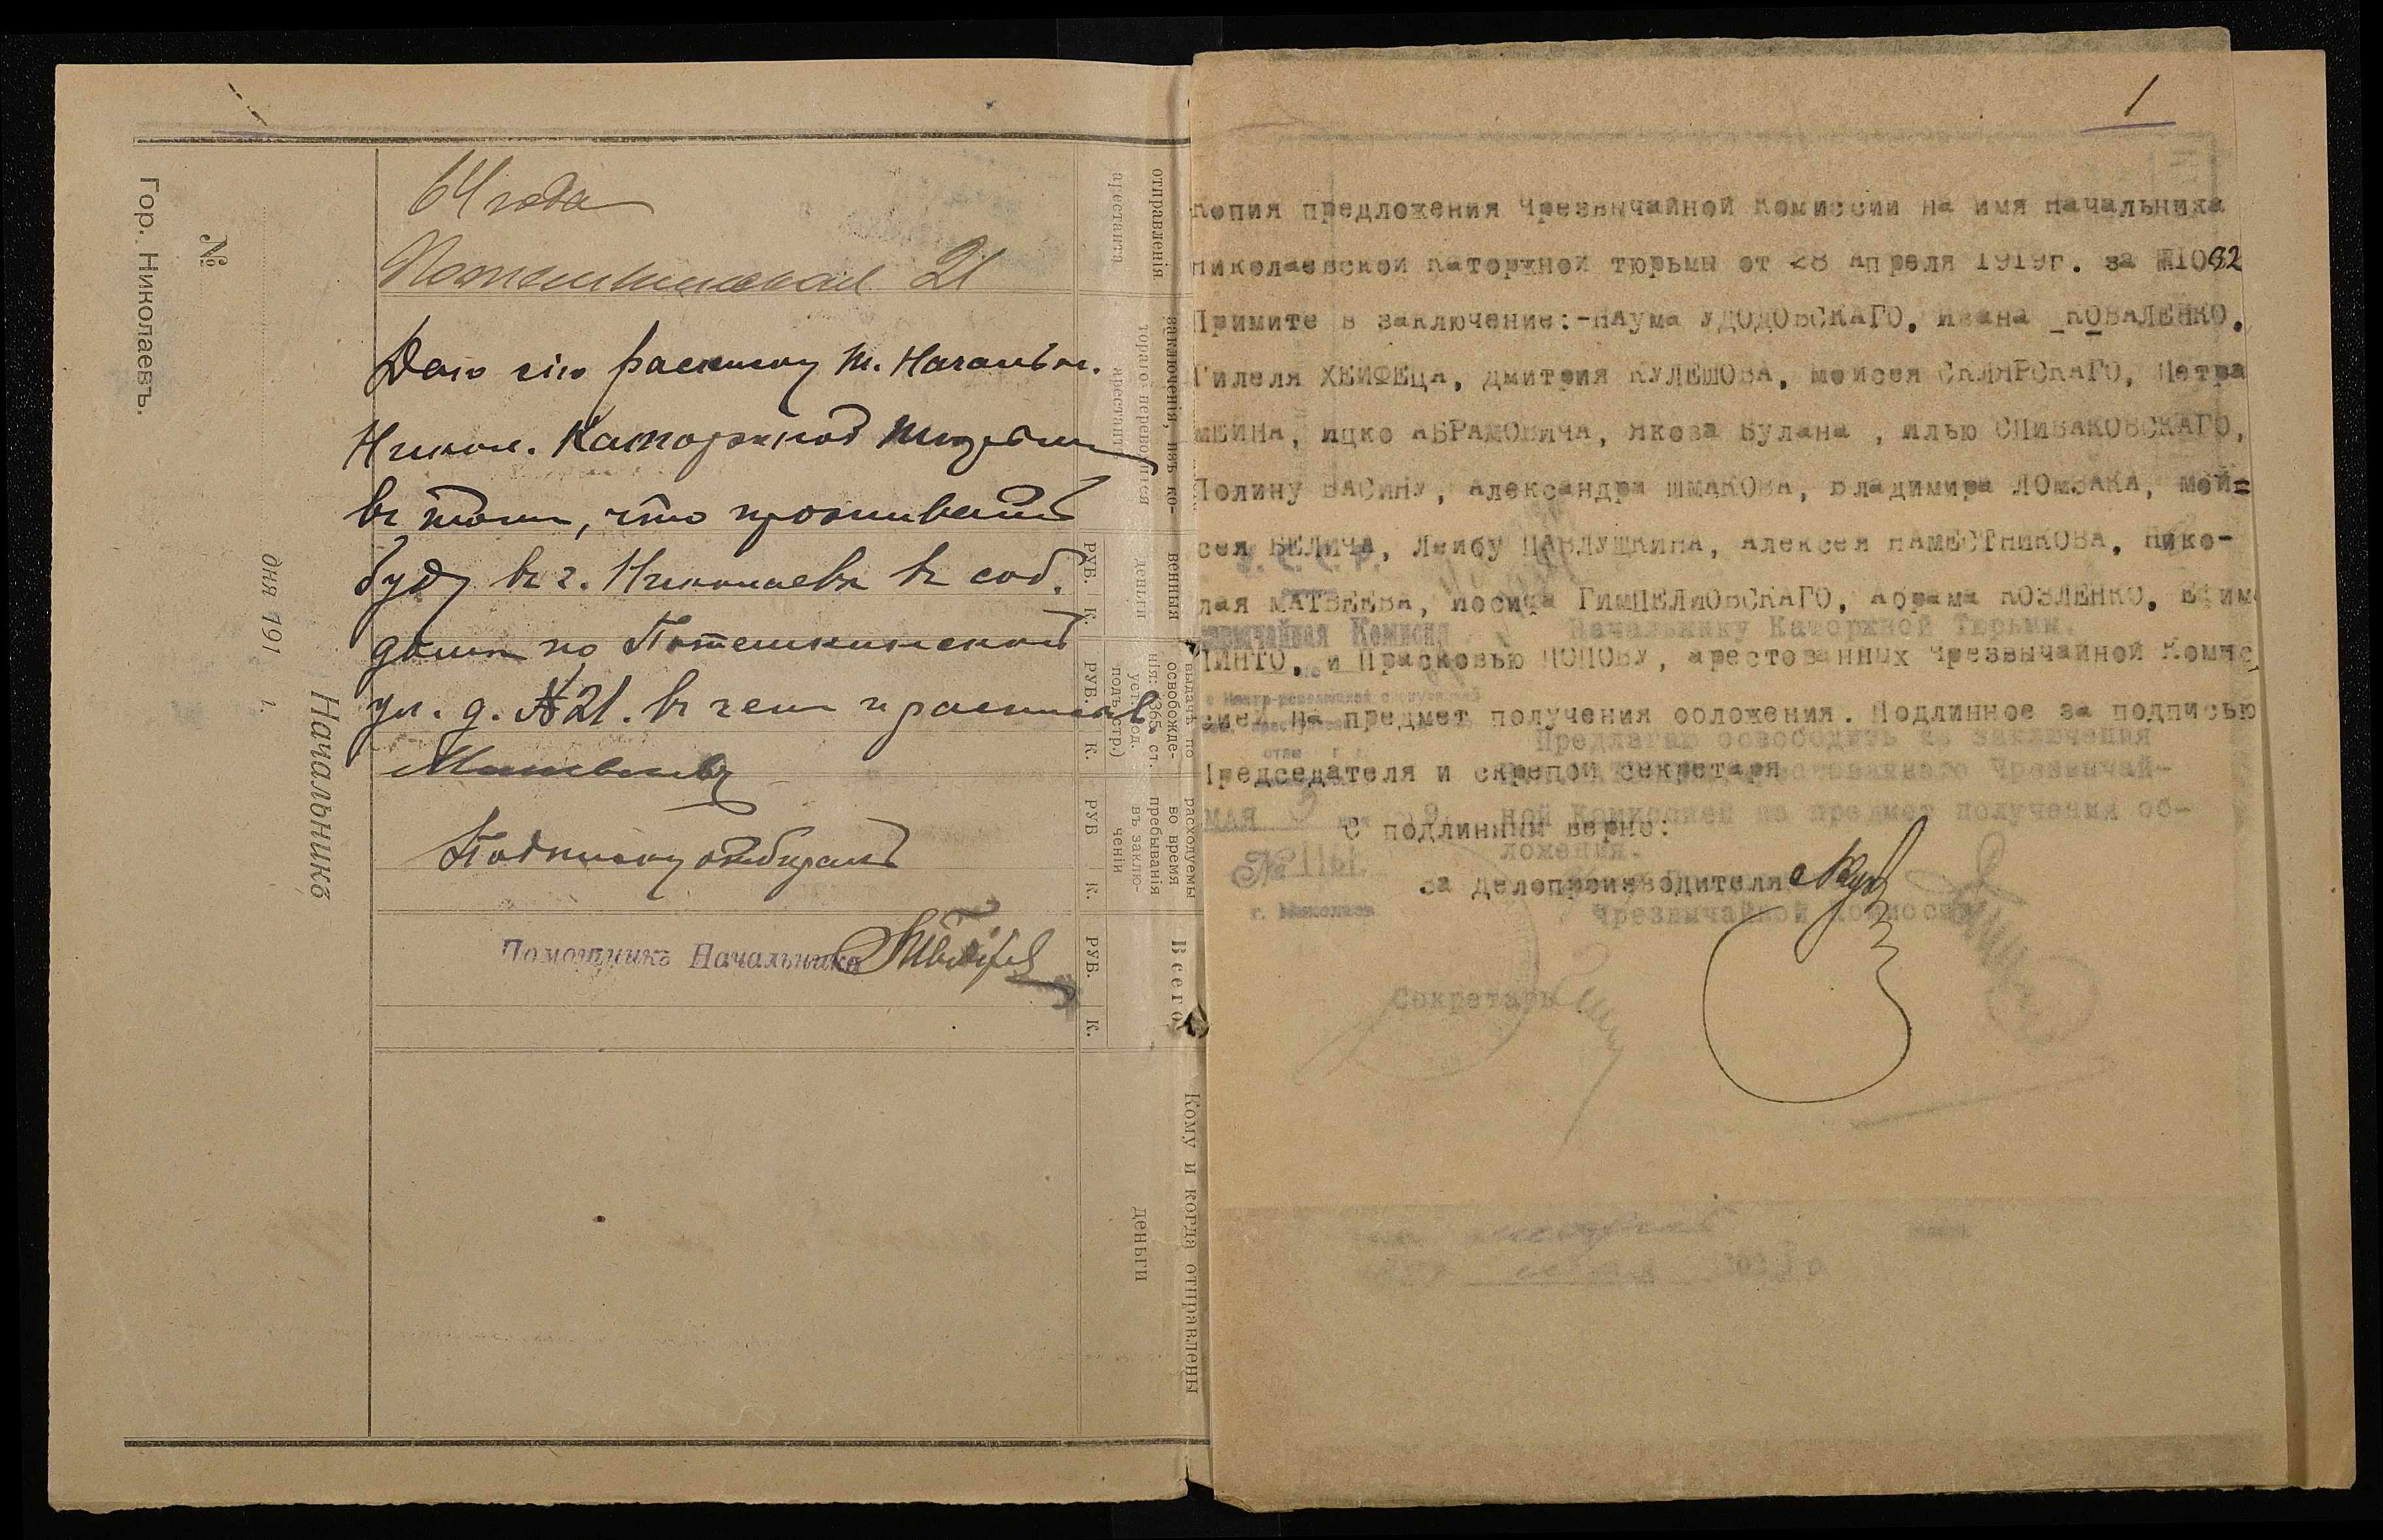 64 года
Потемкинская 21
Даю сию расписку т. Начальн.
Никол. Каторжной тюрьмы
въ томъ, что проживать
буду въ г. Николаевѣ въ соб.
домѣ по Потемкинской
ул. д. №21. въ чемъ и росписался
Подписку отбиралъ
Помощникъ Начальника
Гор. Николаевъ.
№
дня 191 г.
Начальникъ
отправленія
арестанта
заключенія, изъ ко-
тораго переводится
арестантъ
деньги
РУБ. К.
выдачѣ по
освобожде-
РУБ. К.
расходуемы
во время
пребыванія
въ заклю-
ченіи
РУБ К.
Всего
РУБ. К.
Кому и когда отправлены
деньги
1
Копия предложения Чрезвычайной Комиссии на имя Начальника
Николаевской Каторжной тюрьмы от 28 Апреля 1919г. за №1082
Примите в заключение:-Наума УДОДОВСКАГО, Ивана КОВАЛЕНКО,
Гилеля ХЕЙФЕЦА, Дмитрия КУЛЕШОВА, Мойсея СКЛЯРСКАГО, Петра
МЕЙНА, Ицко АБРАМОВИЧА, Якова Булана , Илью СПИВАКОВСКАГО,
Полину ВАСИНУ, Александра ШМАКОВА, Владимира ЛОМЗАКА, Мой=
сея БЕЛИЧА, Лейбу ПАВЛУЩКИНА, Алексея НАМЕСТНИКОВА, Нико-
лая МАТВЕЕВА, Иосифа ГИМПЕЛИОВСКАГО, Абрама КОЗЛЕНКО, Ефима
ПИНТО, и Прасковью ПОПОВУ, арестованных Чрезвычайной Комис
сией на предмет получения обложения. Подлинное за подписью
Председателя и скрепой секретаря
С подлинным верно:
За делопроизводителя
Чрезвычайная Комисия
Начальнику Каторжной Тюрьмы.
Предлагаю освободить из заключения
арестованного Чрезвычай-
МАЯ 3
ной Комиссией на предмет получения об-
ложения.
№ 1161.
г. Николаев
Чрезвычайной Комиссии
Секретарь